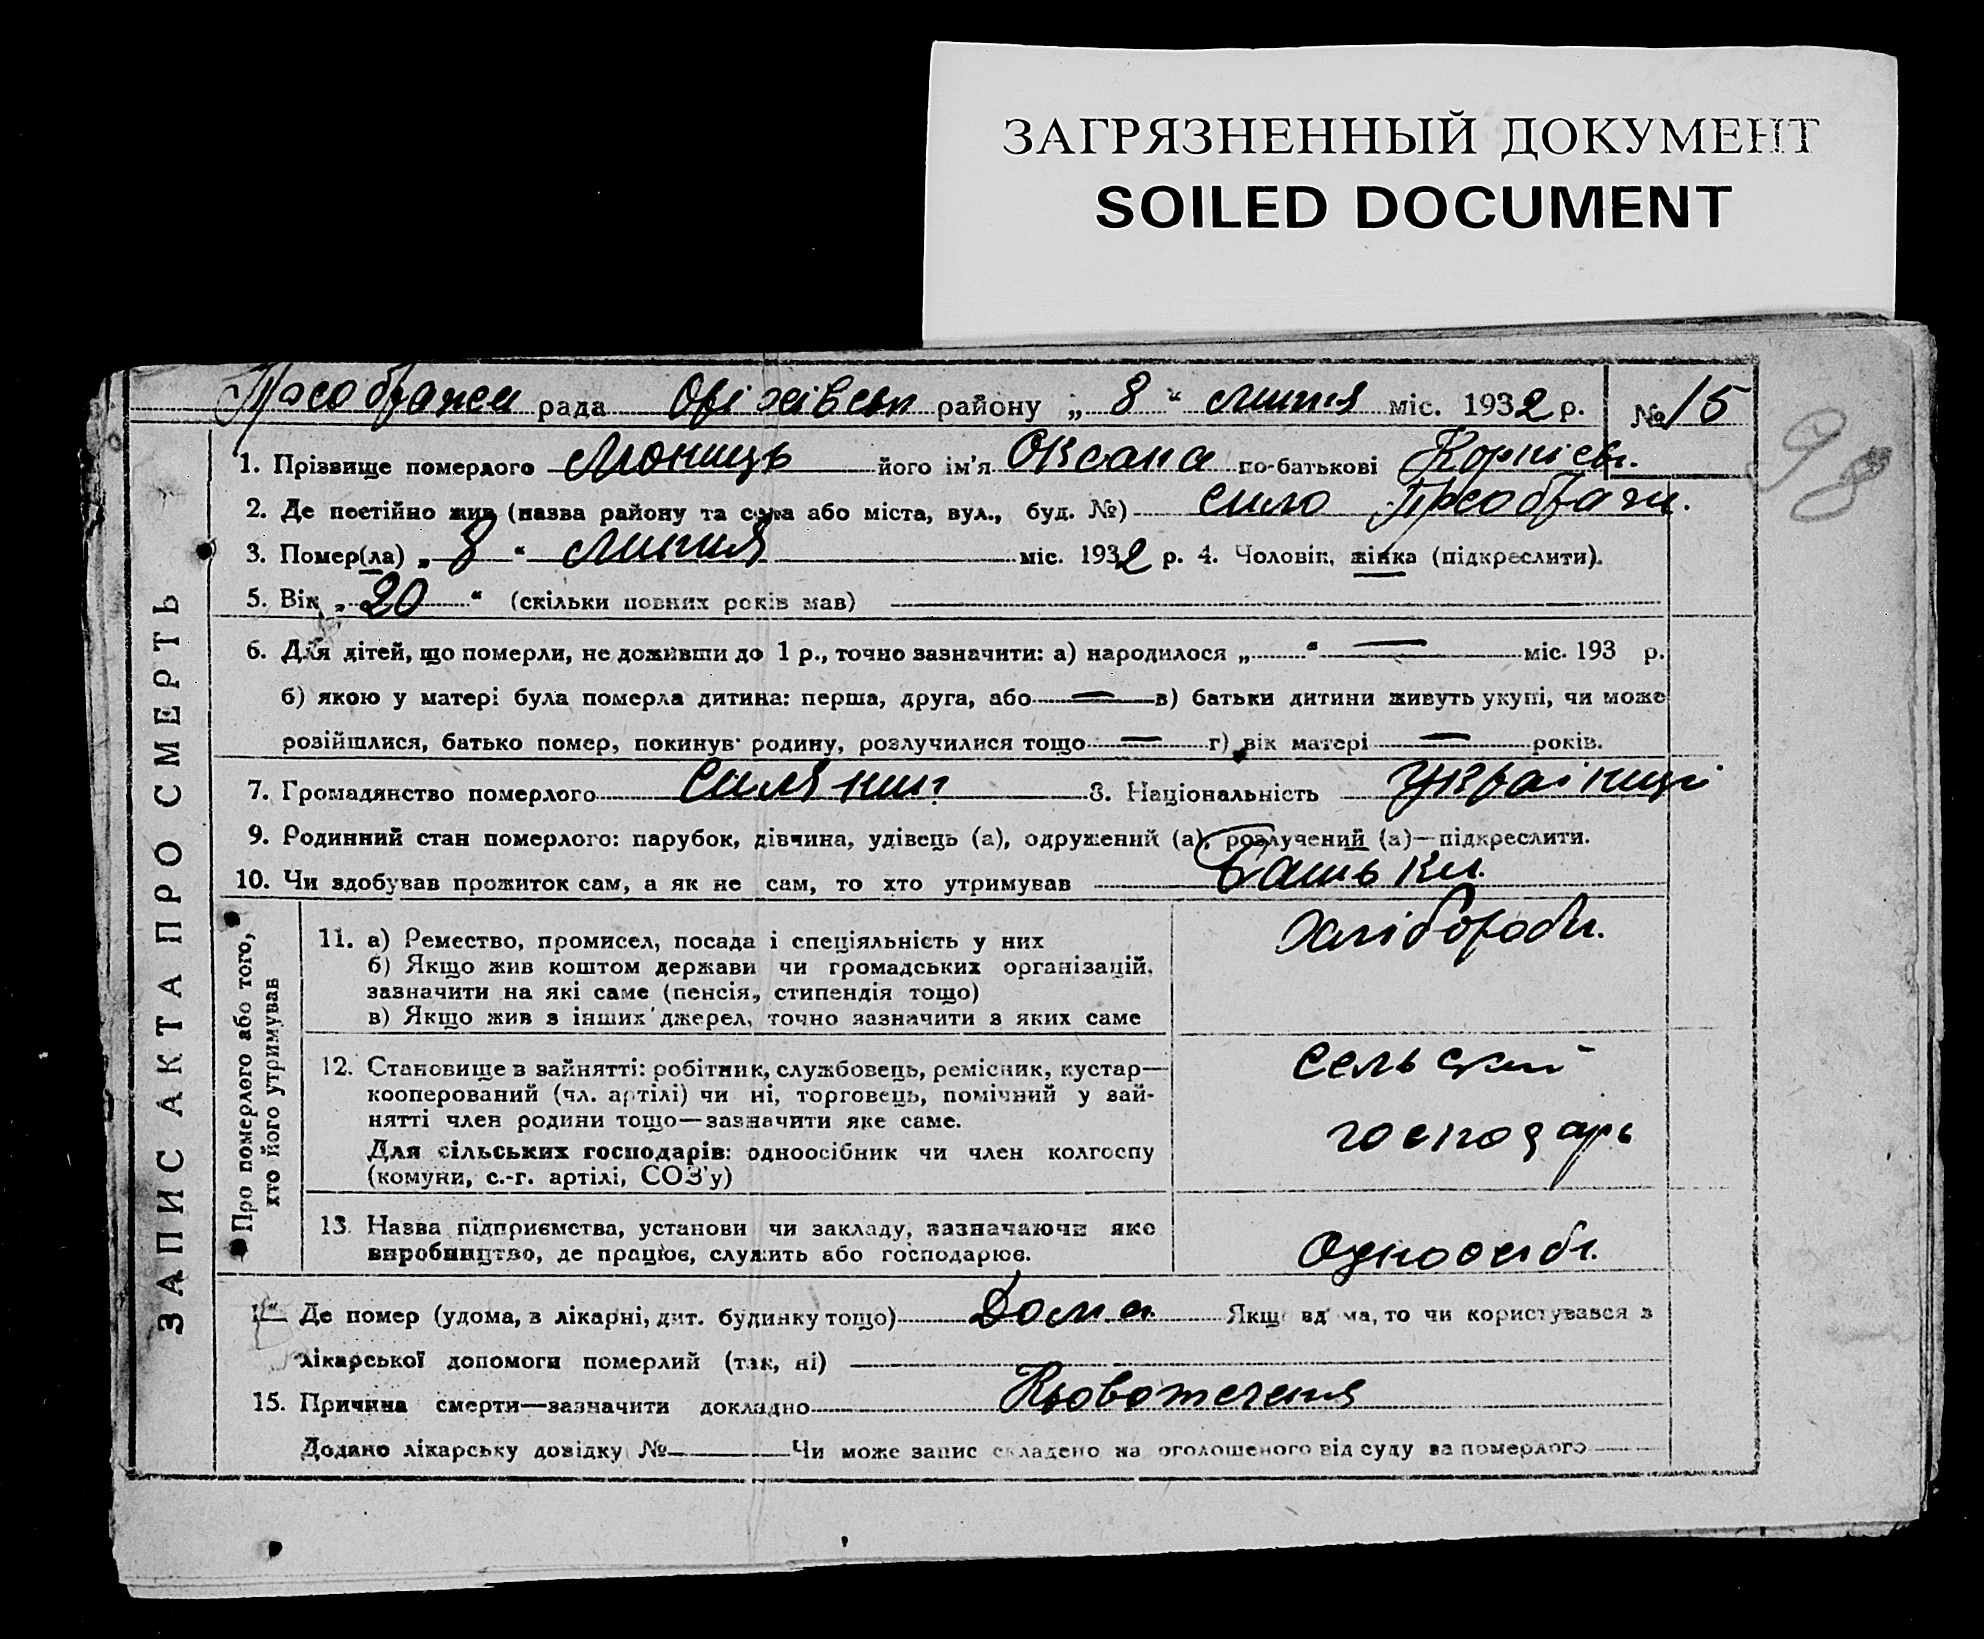 ЗАГРЯЗНЕННЫЙ ДОКУМЕНТ
SOILED DOCUMENT
98
Преображен рада Оріхівськ району „ 8 “ липня міс. 1932 р. № 15
ЗАПИС АКТА ПРО СМЕРТЬ
1. Прізвище померлого його ім'я Оксана по-батькові Корнієв.
2. Де постійно жив (назва району та села або міста, вул., буд. №) село Преображен.
3. Помер(ла) „ 8 “ липня міс. 1932 р. 4. Чоловік, жінка (підкреслити).
5. Вік „ 20 “ (скільки повних років мав)
6. Для дітей, що померли, не доживши до 1 р., точно зазначити: а) народилося „ “ — міс. 193 р.
б) якою у матері була померла дитина: перша, друга, або — в) батьки дитини живуть укупі, чи може
розійшлися, батько помер, покинув родину, розлучилися тощо — г) вік матері — років.
7. Громадянство померлого 8. Національність
9. Родинний стан померлого: парубок, дівчина, удівець (а), одружений (а), розлучений (а)—підкреслити.
10. Чи здобував прожиток сам, а як не сам, то хто утримував батьки.
Про померлого або того,
хто його утримував
11. а) Ремество, промисел, посада і спеціяльність у них
б) Якщо жив коштом держави чи громадських організацій,
зазначити на які саме (пенсія, стипендія тощо)
в) Якщо жив з інших джерел, точно зазначити з яких саме
Хліборобн.
12. Становище в зайнятті: робітник, службовець, ремісник, кустар—
кооперований (чл. артілі) чи ні, торговець, помічний у зай-
нятті член родини тощо—зазначити яке саме.
Для сільських господарів: одноосібник чи член колгоспу
(комуни, с.-г. артілі, СОЗ'у)
сельский
господарь
13. Назва підприємства, установи чи закладу, зазначаючи яке
виробництво, де працює, служить або господарює.
Одноосібн.
Де помер (удома, в лікарні, дит. будинку тощо) Дома Якщо вдома, то чи користувався з
лікарської допомоги померлий (так, ні)
15. Причина смерти—зазначити докладно Кровотечения
Додано лікарську довідку № Чи може запис складено на оголошеного від суду за померлого